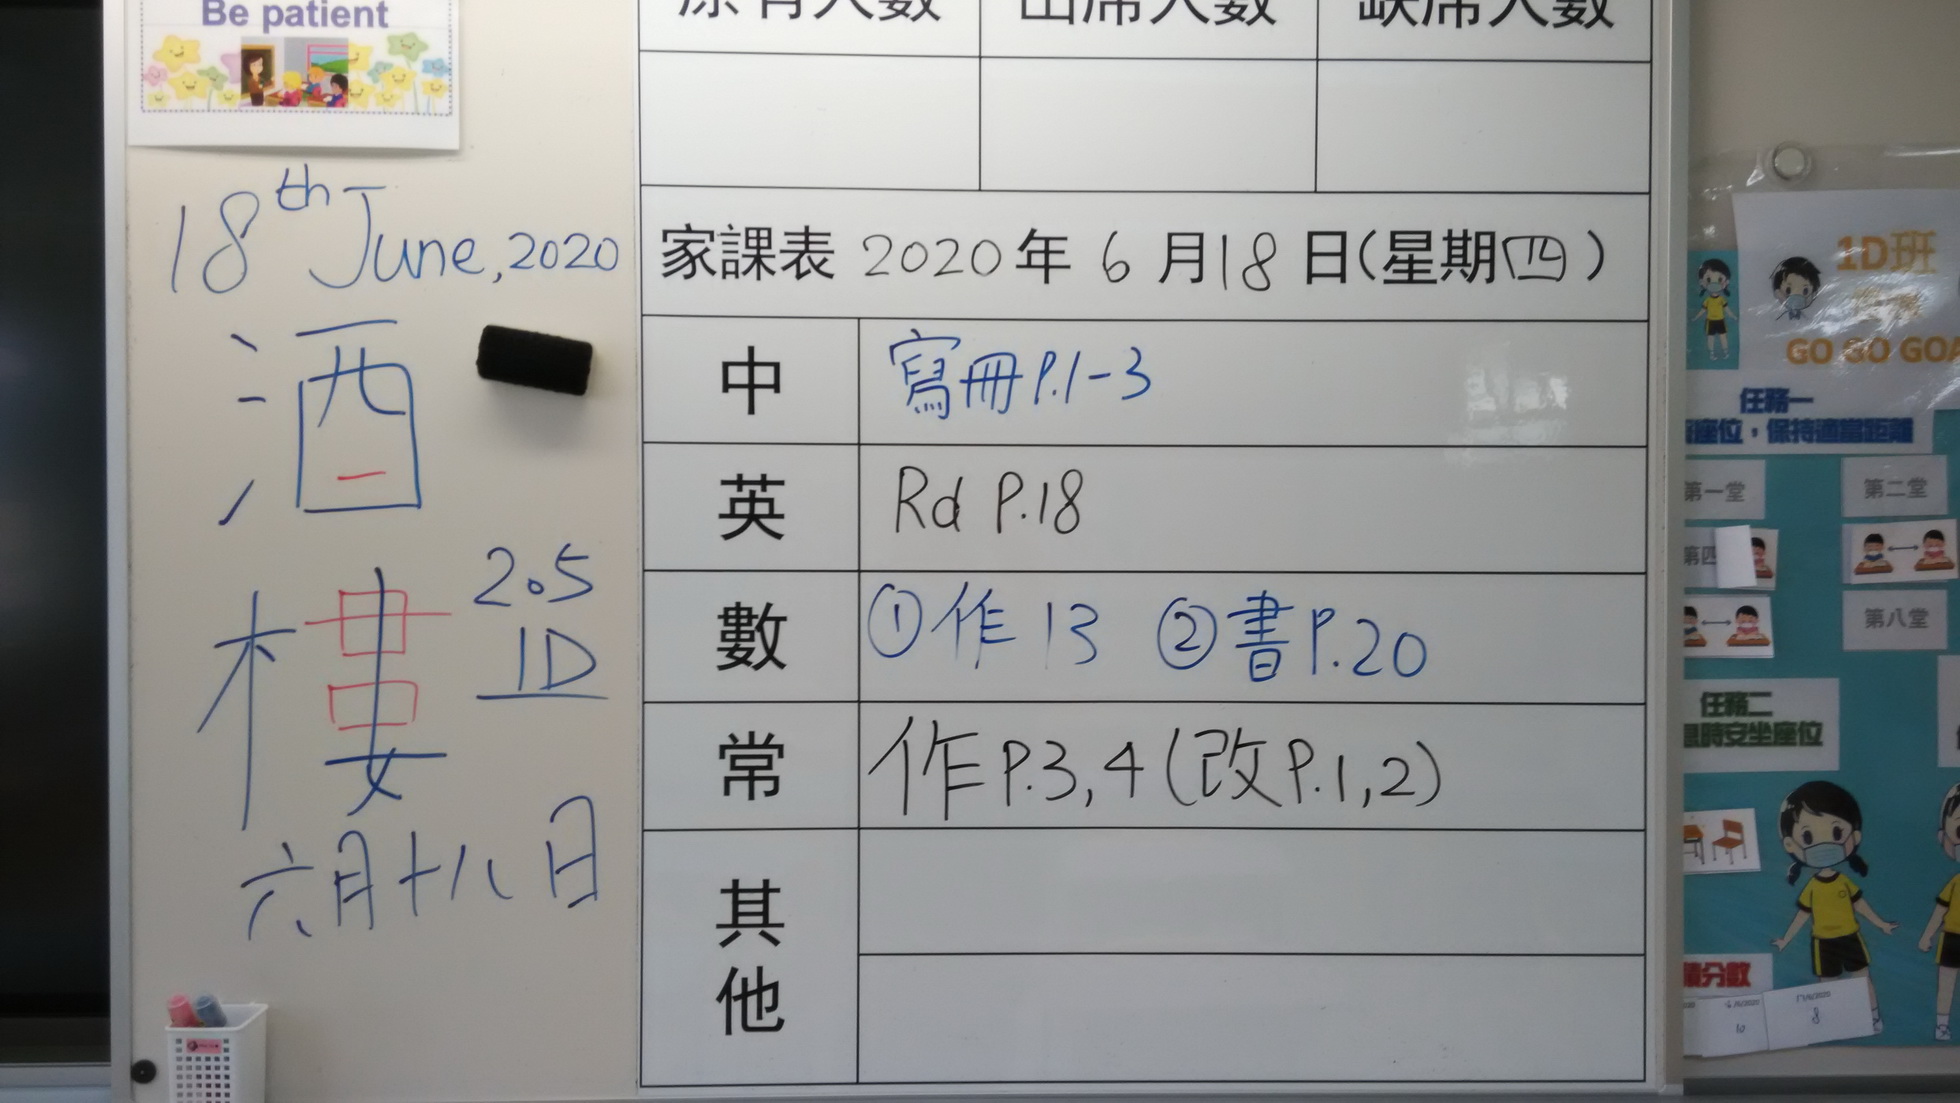 Be patient
18th June, 2020
酒
樓
2.5
1D
六月十八日
原有人數 出席人數 缺席人數
家課表 2020年 6月18日(星期四)
中 寫冊P.1-3
英 Rd P.18
數 ①作13 ②書P.20
常 作P.3,4(改P.1,2)
其他
1D班
GO GO GOA
任務一
座位,保持適當距離
第一堂 第二堂
第四
第八堂
任務二
時安坐座位
分數
10
8